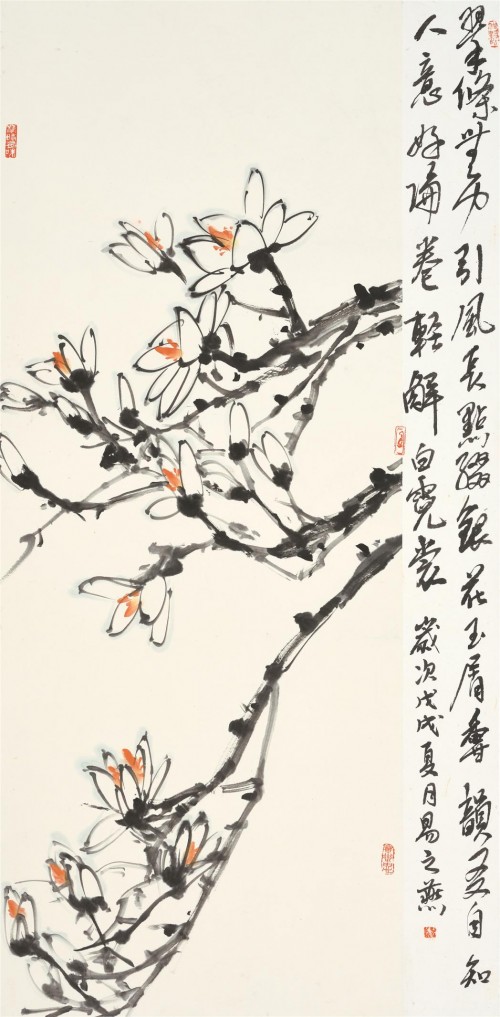 翠條無力引風長點綴銀花玉屑香韻友自知
人意好隔卷輕解白霓裳 歲次戊戌夏月易之燕